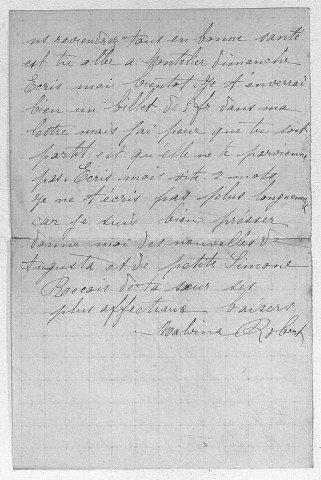 ns reviendrez tous en bonne santé
est tu allé a Montelier dimanche
Ecris moi bientot. Je t'enverrai
bien un billet de 5fr dans ma
lettre mais j'ai peur que tu soit
partit est qu'elle ne te parvienne
pas. Ecris mois vite 2 mots
Je ne t'écris pas plus longuement
car je suis bien presser
donne moi des nouvelles de
Augusta et de petite Simone
Recois de ta sœur ses
plus affectueux baisers
Malvina Robert